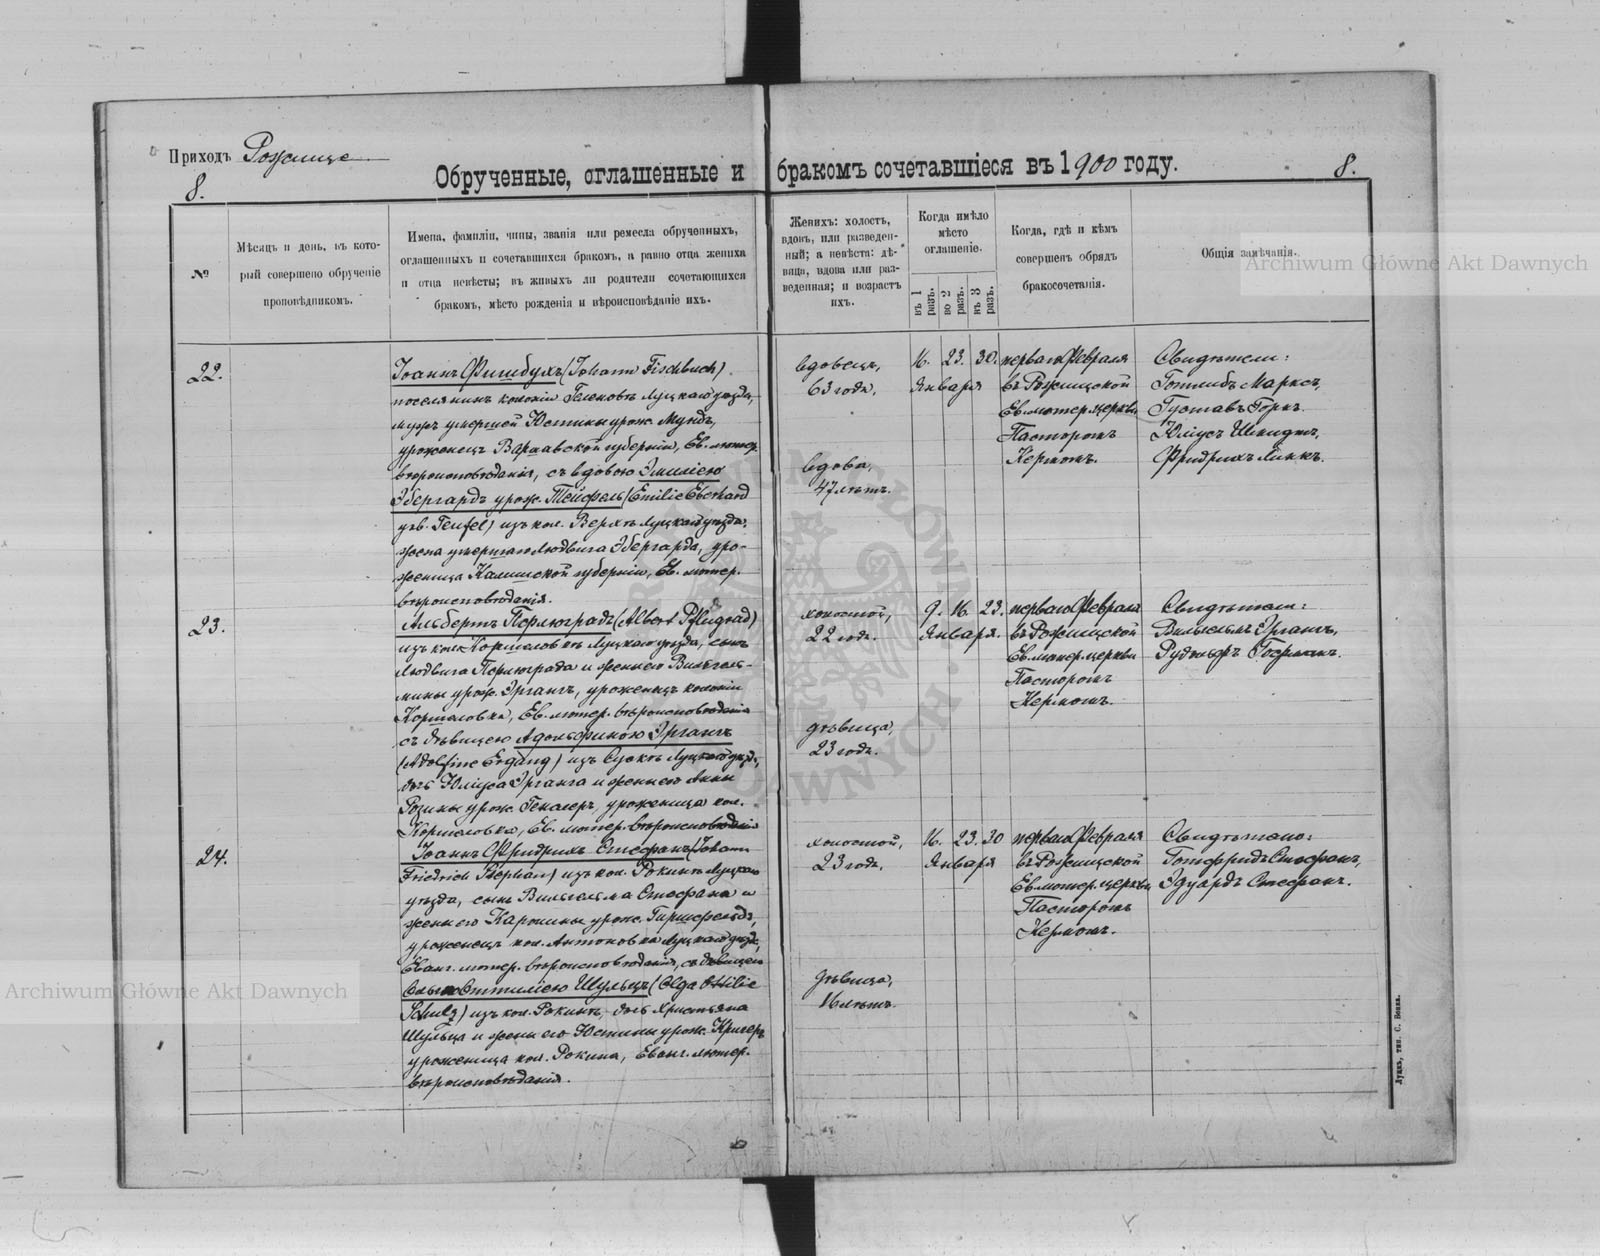 Приходъ Рожище
8.
Обрученные, оглашенные и бракомъ сочетавшіеся въ 1900 году.
8.
№
Мѣсяцъ и день, въ кото-
рый совершено обрученіе
проповѣдникомъ.
Имена, фамиліи, чины, званія или ремесла обрученныхъ,
оглашенныхъ и сочетавшихся бракомъ, а равно отца жениха
и отца невѣсты; въ живыхъ ли родители сочетающихся
бракомъ, мѣсто рожденія и вѣроисповѣданіе ихъ.
Женихъ: холостъ,
вдовъ, или разведен-
ный; а невѣста: дѣ-
вица, вдова или раз-
веденная; и возрастъ
ихъ.
Когда имѣло
мѣсто
оглашеніе.
въ 1 разъ.
во 2 разъ.
въ 3 разъ.
Когда, гдѣ и кѣмъ
совершенъ обрядъ
бракосочетанія.
Общія замѣчанія.
Archiwum Główne Akt Dawnych
22.
Іоаннъ Фишбухъ (Johann Fischbuch)
поселянинъ колоніи Геленовъ Луцкаго уѣзда,
мужъ умершей Юстины урож. Мундъ,
уроженецъ Варшавской губерніи, Ев. лютер.
вѣроисповѣданія, съ вдовою Эмиліею
Эбергардъ урож. Тейфель (Emilie Eberhard
geb. Teufel) изъ кол. Луцкаго уѣзда,
жена умершаго Людвига Эбергарда, уро-
женица Калишской губерніи, Ев. лютер.
вѣроисповѣданія.
вдовецъ,
63 годъ,
вдова,
47 лѣтъ.
16. 23. 30.
Января
перваго Февраля
въ Рожищской
Ев. лютер. церкви
Пасторомъ
Керномъ.
Свидѣтели:
Готлибъ Марксъ,
Густавъ Горкъ.
Юліусъ Шмидтъ,
Фридрихъ Линкъ.
23.
Альбертъ Пфлюградъ (Albert Pflugrad)
изъ кол. Коршаловка Луцкаго уѣзда, сынъ
Людвига Пфлюграда и жены его Вильгель-
мины урож. Эргангъ, уроженецъ колоніи
Коршаловка, Ев. лютер. вѣроисповѣданія
съ дѣвицею Адольфиною Эргангъ
(Adolfine Ergang) изъ Луцкаго уѣзда,
дочь Юліуса Эрганга и жены его Анны
Розины урож. уроженица кол.
Коршаловка, Ев. лютер. вѣроисповѣданія
холостой,
22 годъ.
дѣвица,
23 годъ.
9. 16. 23.
Января.
перваго Февраля
въ Рожищской
Ев. лютер. церкви
Пасторомъ
Керномъ.
Свидѣтели:
Вильгельмъ Эргангъ,
Рудольфъ Гофманъ.
24.
Іоаннъ Фридрихъ Стефанъ (Johann
Friedrich Stephan) изъ кол. Рокинъ Луцкаго
уѣзда, сынъ Вильгельма Стефана и
жены его Каролины урож. Гиршфельдъ,
уроженецъ кол. Антоновка Луцкаго уѣзда,
Еванг. лютер. вѣроисповѣданія, съ дѣвицею
Ольгою Оттиліею Шульцъ (Olga Ottilie
Schulz) изъ кол. Рокинъ, дочь Христьяна
Шульца и жены его Юстины урож. Кригеръ
уроженица кол. Рокина, Еванг. лютер.
вѣроисповѣданія.
холостой,
23 годъ,
дѣвица,
16 лѣтъ.
16. 23. 30
Января
перваго Февраля
въ Рожищской
Ев. лютер. церкви
Пасторомъ
Керномъ.
Свидѣтели:
Готфридъ Стефанъ,
Эдуардъ Стефанъ.
Archiwum Główne Akt Dawnych
Луцкъ, тип. С. Бокка.